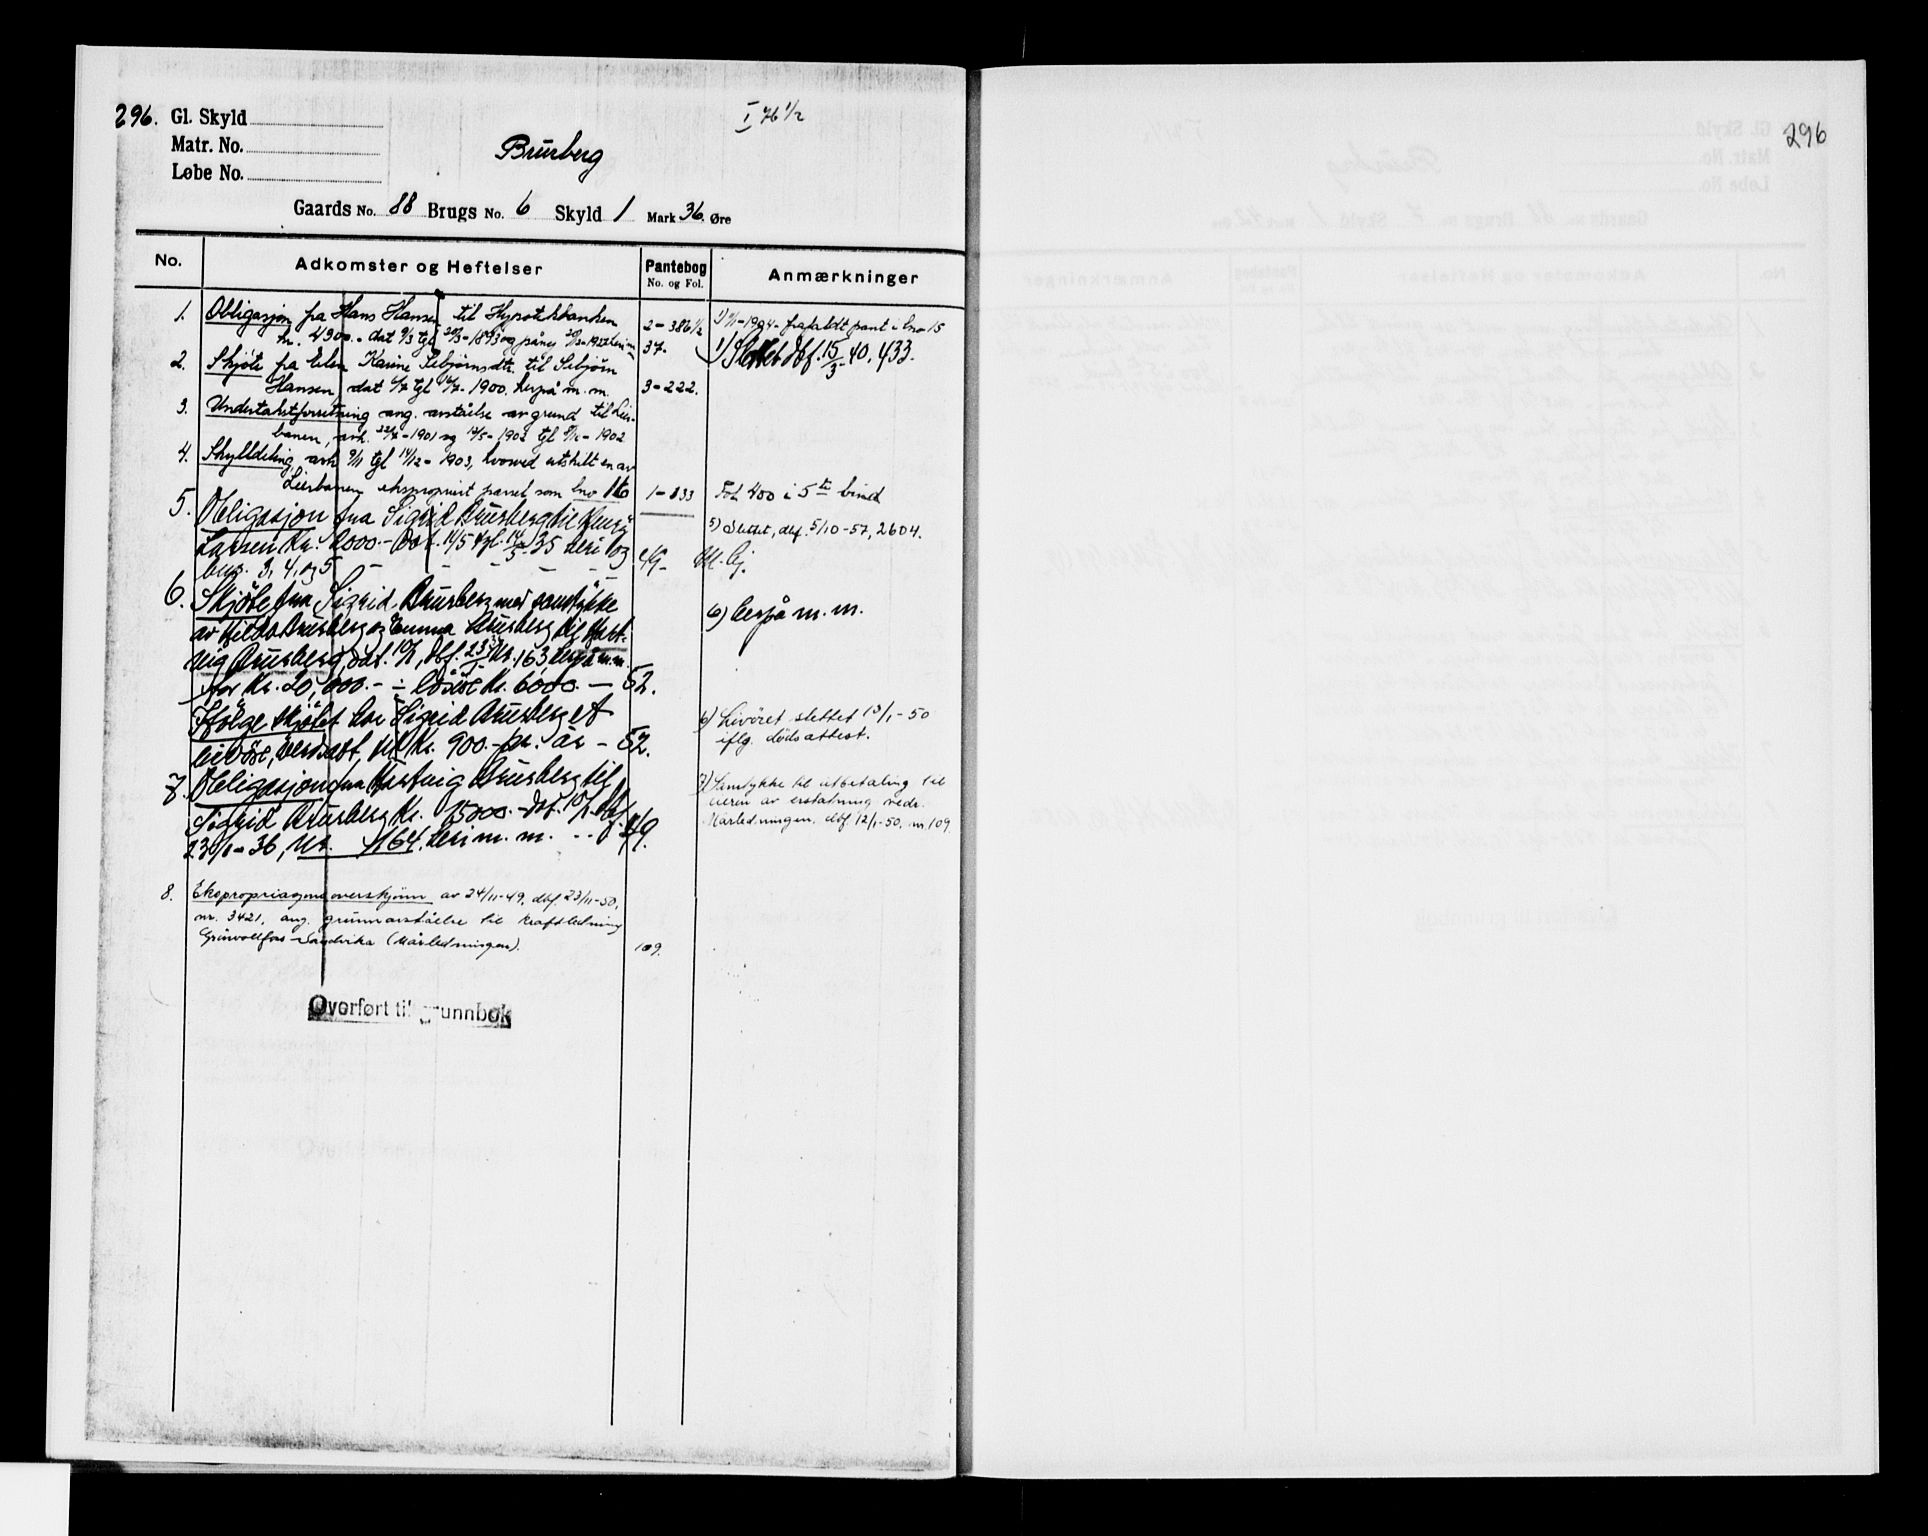 296. Gl. Skyld
I 76 1/2
Matr. No.
Løbe No.
Brusberg
Gaards No. 88 Brugs No. 6 Skyld 1 Mark 36. Øre
No. Adkomster og Heftelser Pantebog No. og Fol. Anmærkninger
1. Obligasjon fra Hans Hansen til Hypotekbanken
kr. 4300.- dat 9/3 tgl 20/3-1893 og påny 2-386 1/2
37.
1) 7/1-1904 frafaldt pant i bno 15
1) Slettet dbf. 15/3-40. 433.
2. Skjøte fra Elen Karine Sebjørnsdtr. til Sebjørn
Hansen dat tgl 1900. herpå m. m. 3-222.
3. Undertakstforretning ang. avståelse av grund til Lier-
banen, avh. 22/4-1901 og 14/5-1902 tgl 1902
4. Skylddeling avh 9/11 tgl 14/12-1903, hvorved utskilt en av
Lierbanen ekspropriert parsel som bno 16 1-833 Fol. 400 i 5te bind
5. Obligasjon fra Sigrid Brusberg til
Larsen Kr. 2000.- Dat. 14/5 tgl. 14/5-35 heri og
bnr. 3, 4, og 5 49-
5) Slettet, dbf. 5/10-57, 2604.
6. Skjøte fra Sigrid Brusberg med samtykke
av Hilda Brusberg og Emma Brusberg til Hart-
vig Brusberg, dat. 10/1, dbf. 23/1 Nr. 163, herpå m.m.
for Kr. 20,000.- ÷ løsøre Kr. 6000.- 52.
6) herpå m. m.
Ifølge skjøtet har Sigrid Brusberg et
livøre, verdsatt til Kr. 900.- pr. år - 52.
6) Livøret slettet 13/1-50
iflg. dødsattest.
7. Obligasjon fra Hartvig Brusberg til
Sigrid Brusberg Kr. 15000.- dat. 10/1 dbf.
23/1-36, Nr. 164. heri m. m. 49.
7) Samtykke til utbetaling til
eieren av erstatning vedr.
Mårledningen. dbf. 12/1-50, nr. 109.
8. Ekspropriasjonsoverskjønn av 24/11-49, dbf. 23/11-50,
nr. 3421, ang. grunnavståelse til kraftledning
Grønvollfoss-Sandvika (Mårledningen). 109.
Overført til grunnbok
296